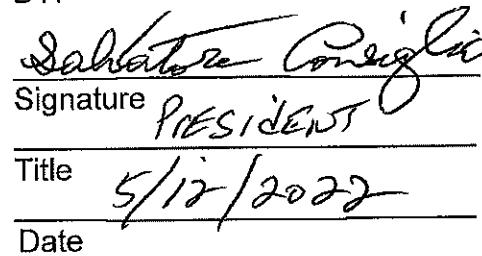 Salvatore Consiglio
Signature
PRESIDENT
Title
5/12/2022
Date